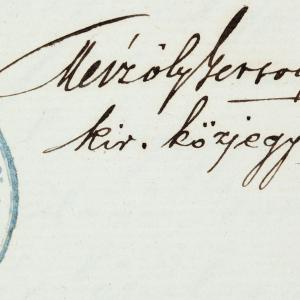 Mezzöly Gerso
kir. közjegy